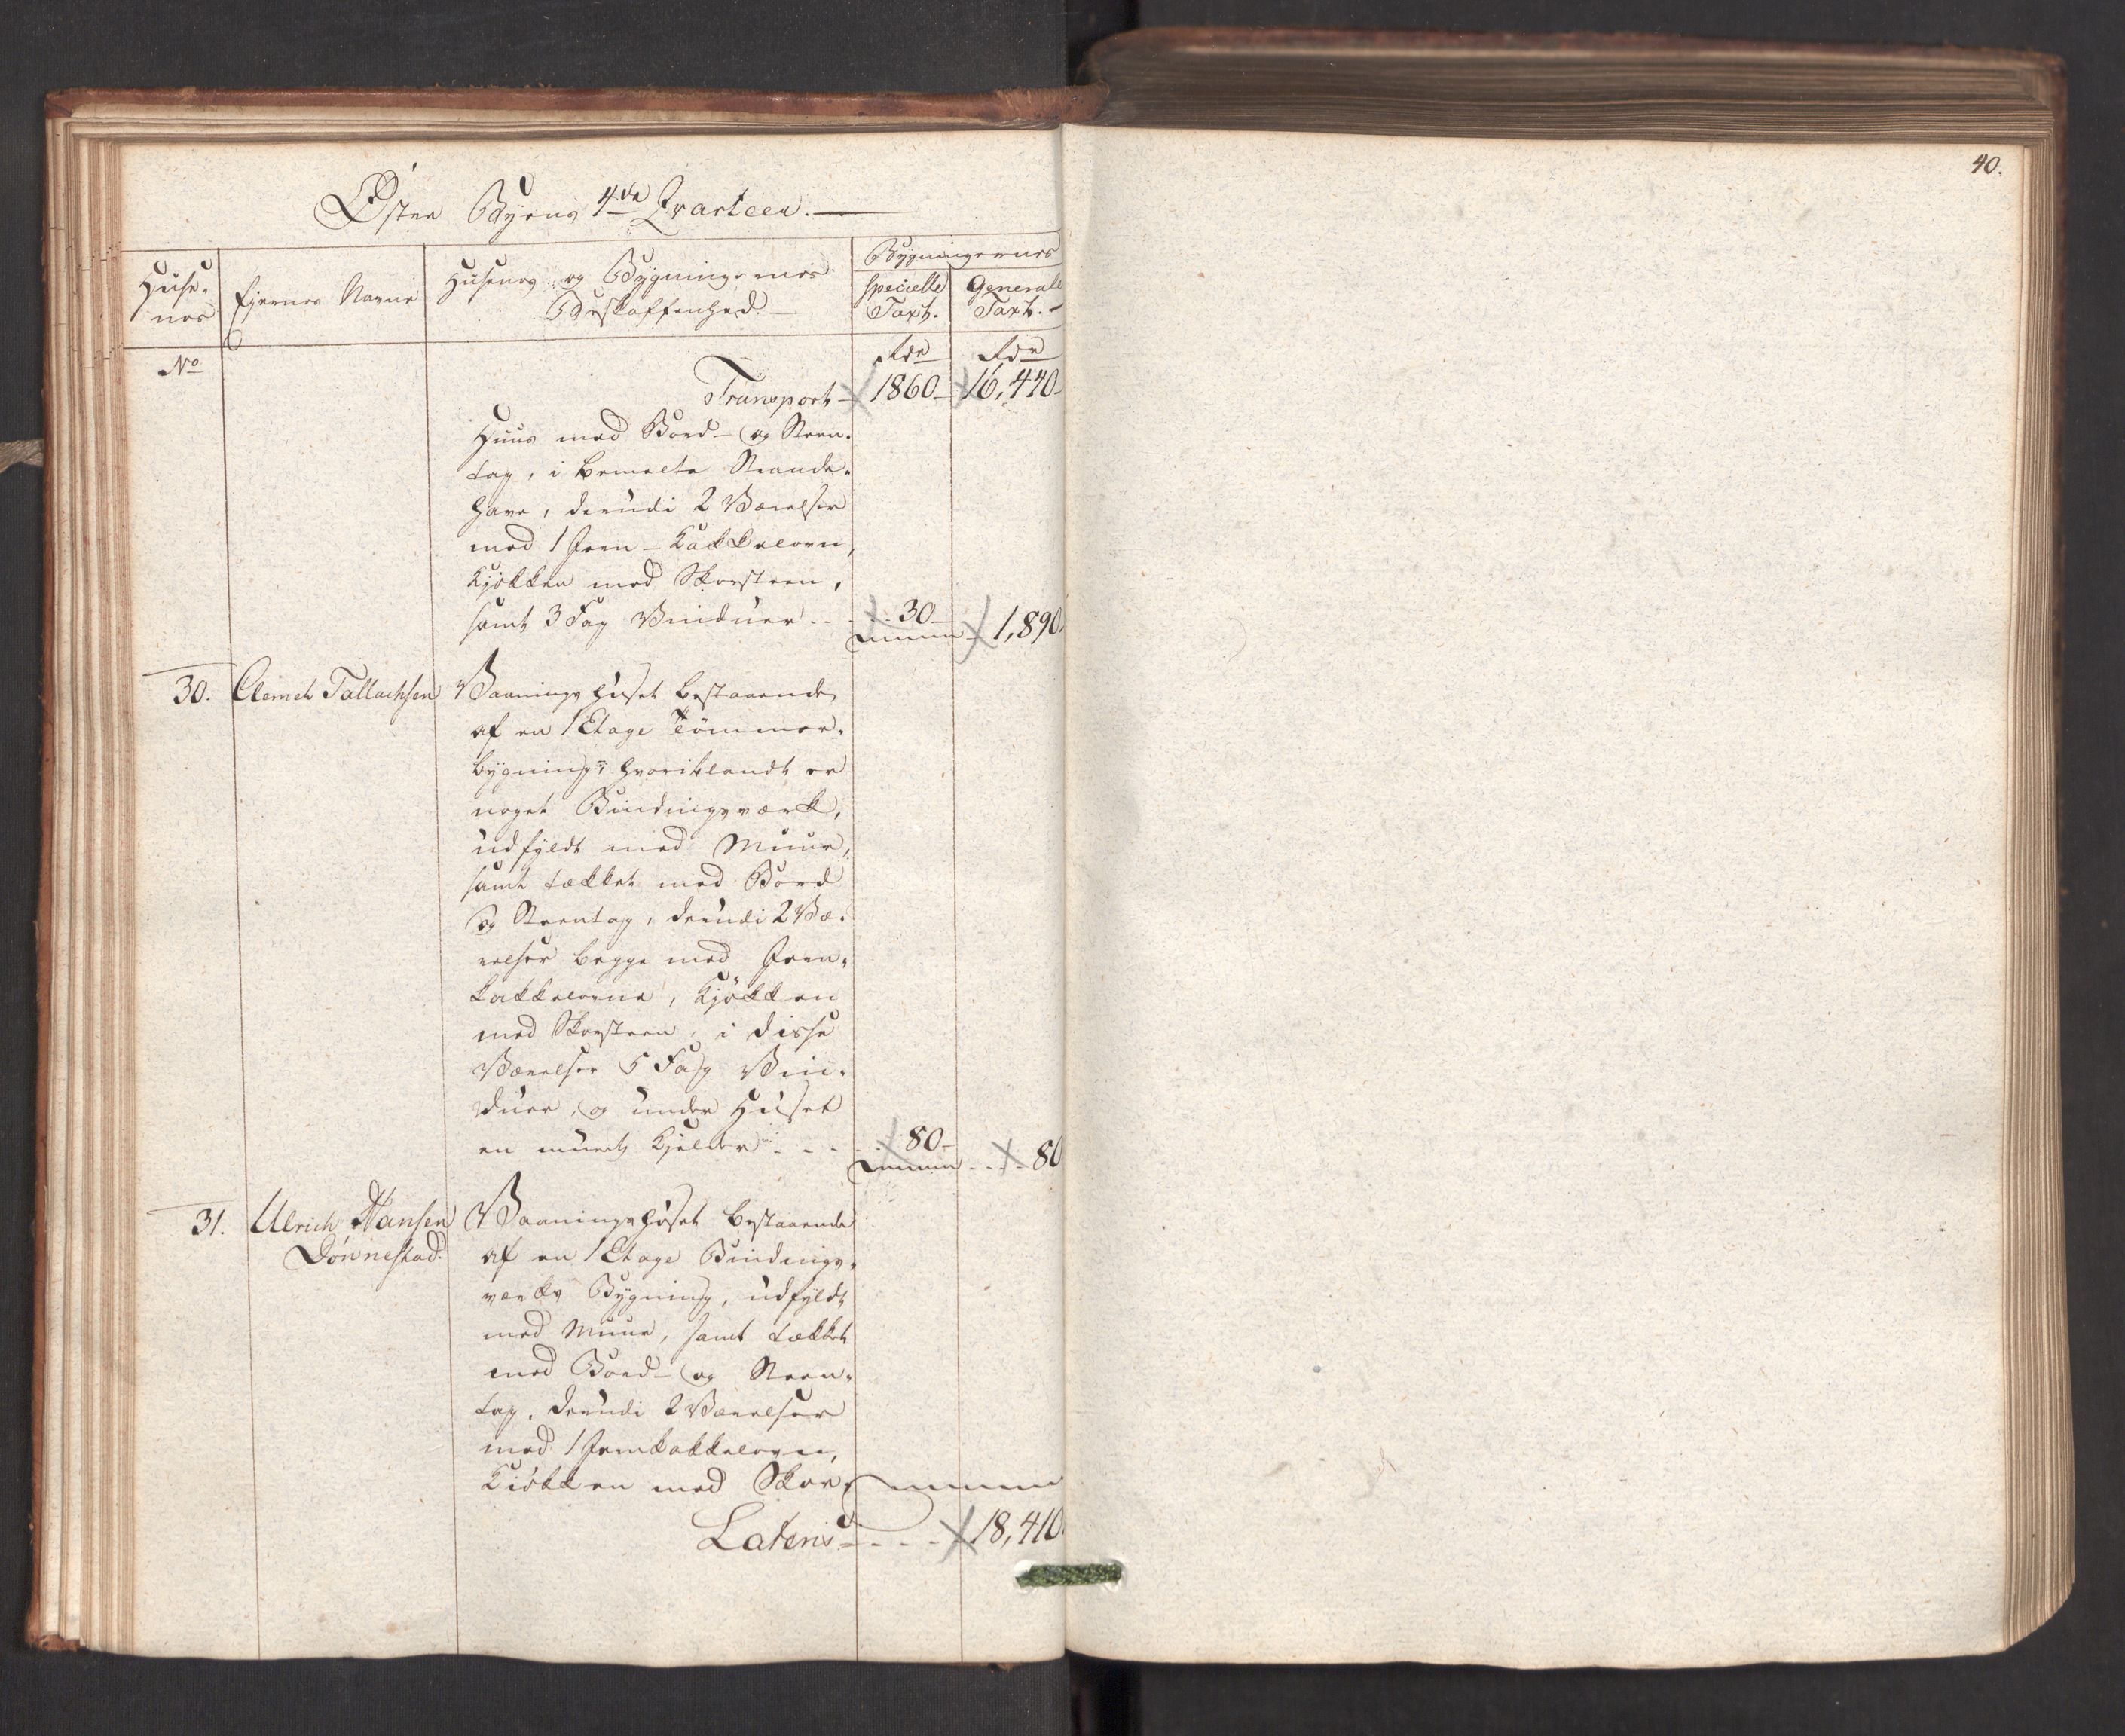 40.
Øster Byens 4de Qvarteer.
Huse-
nes
Ejernes Navne
Husenes og Bygningernes
Beskaffenhed.
Bygningernes
Specielle
Taxt.
Generale
Taxt.
No
Rdr
Rdr
Transport 1860 16,440
Huus med Bord- og Steen-
tag, i bemelte Strande-
have, derudi 2 Værelser
med 1 Jern-Kakkelovn,
Kjøkken med Skorsteen,
samt 3 Fag Vinduer 30
1,890
30. Clemet Tallachsen Vaaningshuset bestaaende
af en 1 Etage Tømmer-
bygning, hvoriblandt er
noget Bindingsværk,
udfyldt med Muur,
samt tækket med Bord
og Steentag, derudi 2 Væ-
relser begge med Jern-
kakkelovne, Kjøkken
med Skorsteen, i disse
Værelser 5 Fag Vin-
duer, og under Huset
en muret Kjelder 80
80
31. Ulrich Hansen Vaaningshuset bestaaende
Dønnestad. af en 1 Etage Bindings-
værks Bygning, udfyldt
med Muur, samt tækket
med Bord- og Steen-
tag, derudi 2 Værelser
med 1 Jernkakkelovn,
Kiøkken med Skor-
Lateris 18,410